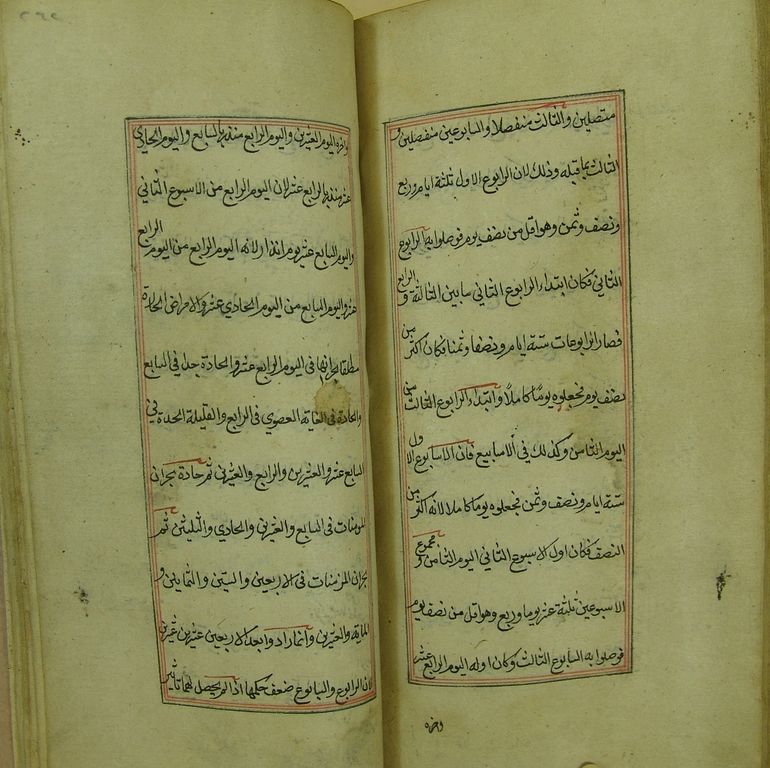 متصلين والثالث منفصلا والسابوعين منفصلين و
الثالث بما قبله وذلك لان الرابوع الاول ثلثة ايام وربع
ونصف وثمن وهو اقل من نصف يوم فوصلوا به الرابوع
الثاني فكان ابتداء الرابوع الثاني ما بين الثالثة و الرابع
فصار الرابوعات ستة ايام ونصفا وثمنا فكان اكثر من
نصف يوم فجعلوه يومًا كاملًا وابتداء الرابوع الثالث من
اليوم الثامن وكذلك في الاسابيع فان الاسابوع الاول
ستة ايام ونصف وثمن فجعلوه يوما كاملا لانه اكثر من
النصف فكان اول الاسبوع الثاني اليوم الثامن و مجموع
الاسبوعين ثلثة عشر يوما وربع وهو اقل من نصف يوم
فوصلوا به السابوع الثالث وكان اوله اليوم الرابع عشر
واخره
واخره اليوم العشرين واليوم الرابع منذر بالسابع واليوم الحادي
عشر منذر بالرابع عشر لان اليوم الرابع من الاسبوع الثاني
واليوم السابع عشر يوم انذار لانه اليوم الرابع من اليوم الرابع
عشر واليوم السابع من اليوم الحادي عشر والامراض الحادة
مطلقا بحرانها في اليوم الرابع عشر والحادة جدا في السابع
والحادة في الغاية القصوى في الرابع والقليلة الحدة في
السابع عشر والعشرين والرابع والعشرين ثم حادة بحران
المزمنات في السابع والعشرين والحادي والثلثين ثم
بحران المزمنات في الاربعين والستين والثمانين و
المايه والعشرين وانما زاد وابعد الاربعين عشرين عشرين
لان الرابوع والسابوع ضعف حكمها اذا لم يحصل لهما تاثير